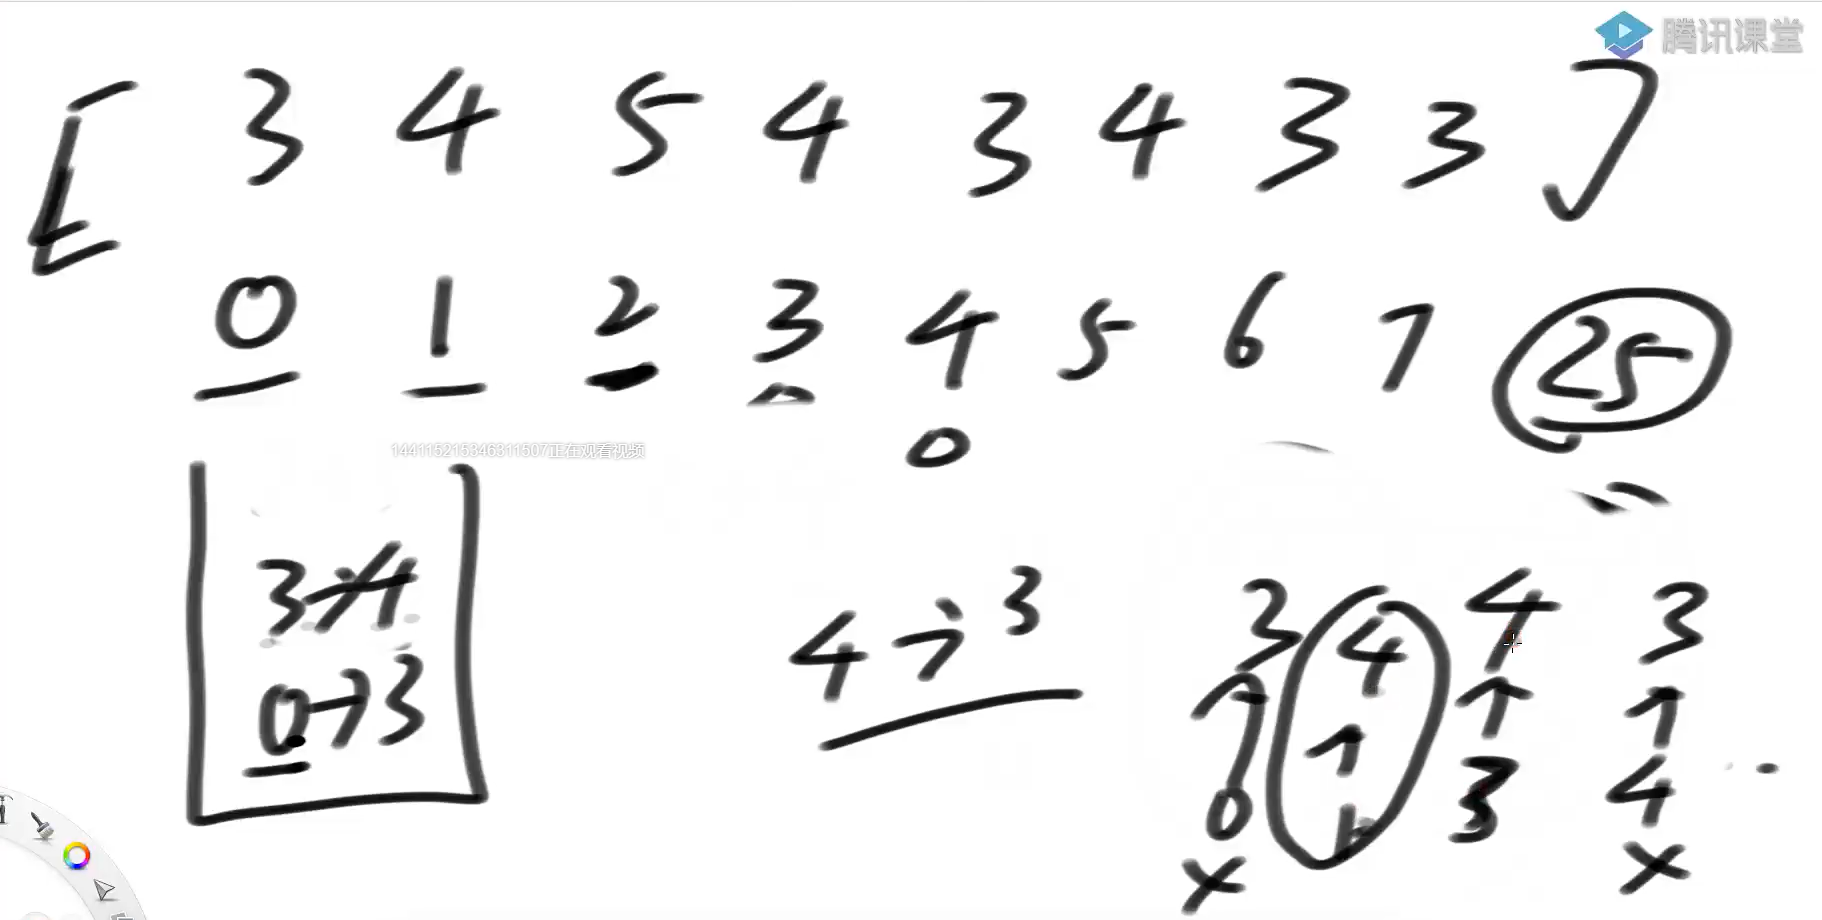 腾讯课堂
[ 3 4 5 4 3 4 3 3 ]
0 1 2 3 4 5 6 7 25
0
144115215346311507正在观看视频
3→4
0→3
4→3
3 4 4 3
↑ ↑ ↑ ↑
0 1 3 4
x x